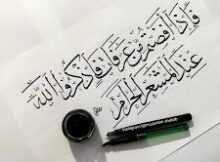 فَإِذَا أَفَضْتُم مِّنْ عَرَفَاتٍ فَاذْكُرُوا اللَّهَ
عِنْدَ الْمَشْعَرِ الْحَرَامِ